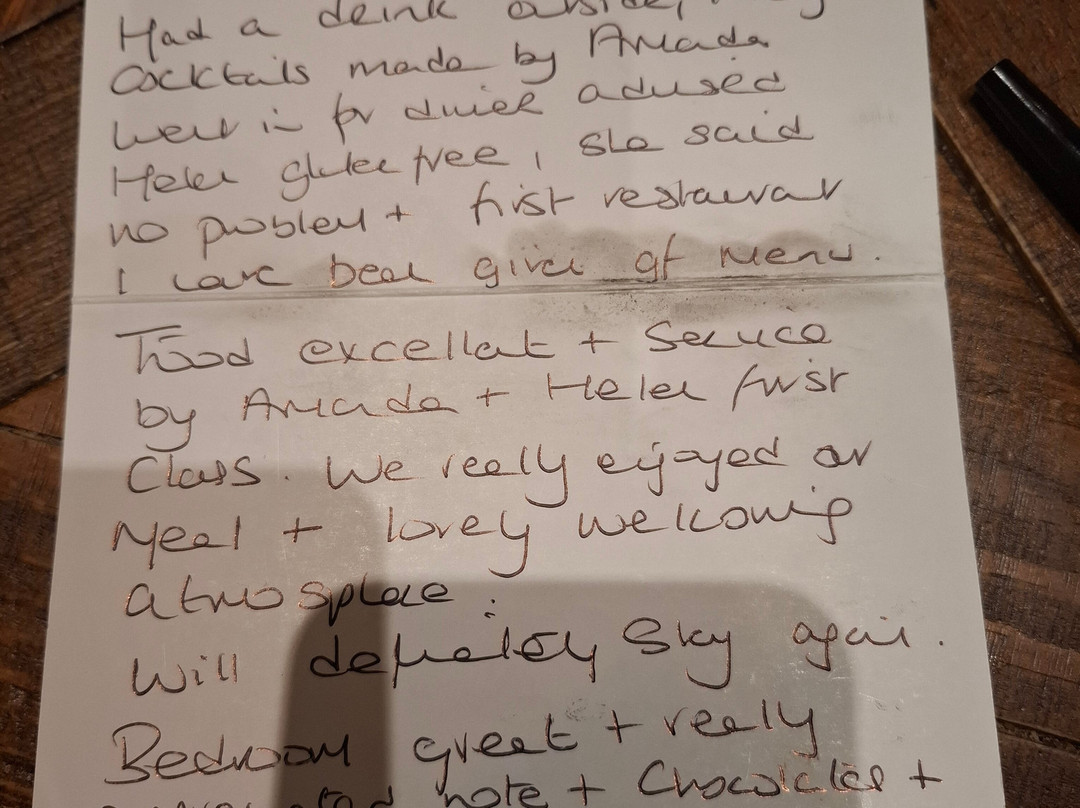 Had a drink outside,
Cocktails made by Amanda
Went in for dinner advised
Helen gluten free, she said
no problem + first restaurant
I have been given gf menu.
Food excellent + Service
by Amanda + Helen first
Class. We really enjoyed our
Meal + lovely welcoming
atmosphere.
Will definitely stay again.
Bedroom great + really
note + Chocolates +